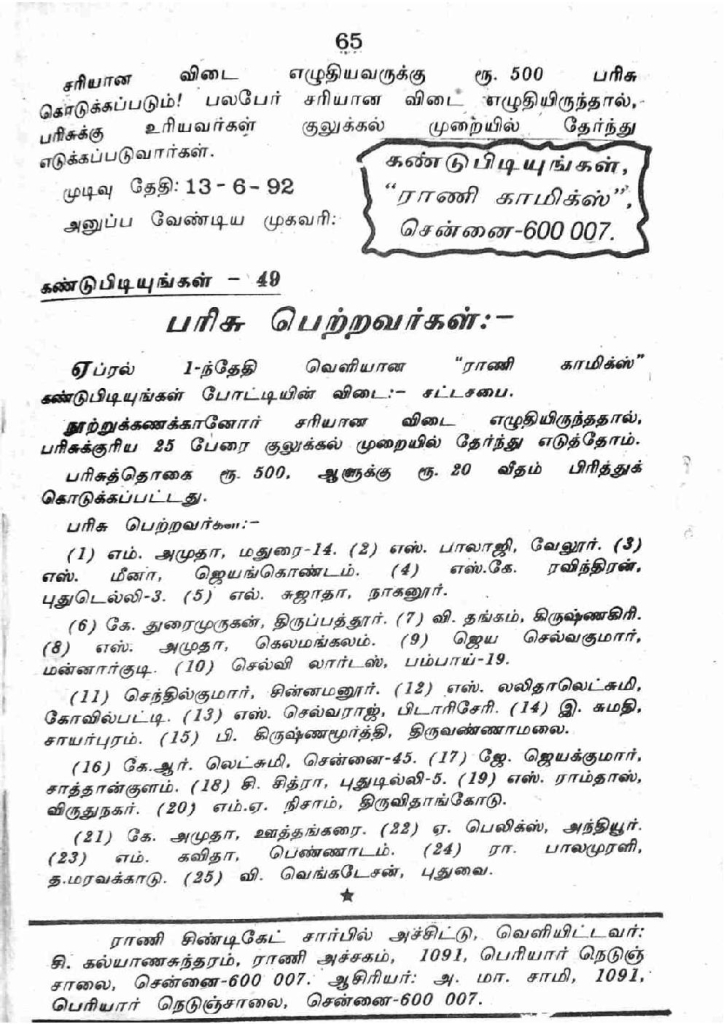 65
சரியான விடை எழுதியவருக்கு ரூ. 500 பரிசு
கொடுக்கப்படும்! பலபேர் சரியான விடை எழுதியிருந்தால்,
பரிசுக்கு உரியவர்கள் குலுக்கல் முறையில் தேர்ந்து
எடுக்கப்படுவார்கள்.
முடிவு தேதி: 13-6-92
அனுப்ப வேண்டிய முகவரி:
கண்டுபிடியுங்கள்,
"ராணி காமிக்ஸ்",
சென்னை-600 007.
கண்டுபிடியுங்கள் - 49
பரிசு பெற்றவர்கள்:-
ஏப்ரல் 1-ந்தேதி வெளியான "ராணி காமிக்ஸ்"
கண்டுபிடியுங்கள் போட்டியின் விடை:- சட்டசபை.
நூற்றுக்கணக்கானோர் சரியான விடை எழுதியிருந்ததால்,
பரிசுக்குரிய 25 பேரை குலுக்கல் முறையில் தேர்ந்து எடுத்தோம்.
பரிசுத்தொகை ரூ. 500, ஆளுக்கு ரூ. 20 வீதம் பிரித்துக்
கொடுக்கப்பட்டது.
பரிசு பெற்றவர்கள்:-
(1) எம். அமுதா, மதுரை-14. (2) எஸ். பாலாஜி, வேலூர். (3)
எஸ். மீனா, ஜெயங்கொண்டம். (4) எஸ்.கே. ரவிந்திரன்,
புதுடெல்லி-3. (5) எல். சுஜாதா, நாகனூர்.
(6) கே. துரைமுருகன், திருப்பத்தூர். (7) வி. தங்கம், கிருஷ்ணகிரி.
(8) எஸ். அமுதா, கெலமங்கலம். (9) ஜெய செல்வகுமார்,
மன்னார்குடி. (10) செல்வி லார்டஸ், பம்பாய்-19.
(11) செந்தில்குமார், சின்னமனூர். (12) எஸ். லலிதாலெட்சுமி,
கோவில்பட்டி. (13) எஸ். செல்வராஜ், பிடாரிசேரி. (14) இ. சுமதி,
சாயர்புரம். (15) பி. கிருஷ்ணமூர்த்தி, திருவண்ணாமலை.
(16) கே.ஆர். லெட்சுமி, சென்னை-45. (17) ஜே. ஜெயக்குமார்,
சாத்தான்குளம். (18) சி. சித்ரா, புதுடில்லி-5. (19) எஸ். ராம்தாஸ்,
விருதுநகர். (20) எம்.ஏ. நிசாம், திருவிதாங்கோடு.
(21) கே. அமுதா, ஊத்தங்கரை. (22) ஏ. பெலிக்ஸ், அந்தியூர்.
(23) எம். கவிதா, பெண்ணாடம். (24) ரா. பாலமுரளி,
த.மரவக்காடு. (25) வி. வெங்கடேசன், புதுவை.
ராணி சிண்டிகேட் சார்பில் அச்சிட்டு, வெளியிட்டவர்:
சி. கல்யாணசுந்தரம், ராணி அச்சகம், 1091, பெரியார் நெடுஞ்
சாலை, சென்னை-600 007. ஆசிரியர்: அ. மா. சாமி, 1091,
பெரியார் நெடுஞ்சாலை, சென்னை-600 007.